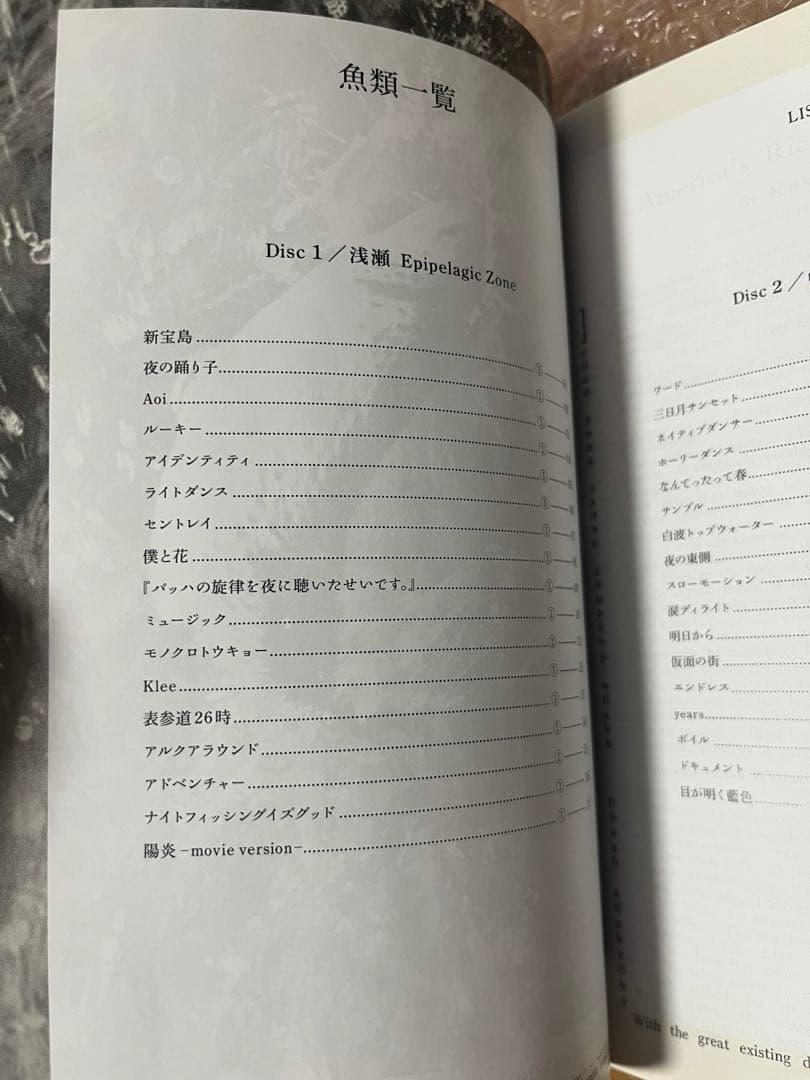 魚類一覧
Disc 1／浅瀬 Epipelagic Zone
新宝島 ①—01
夜の踊り子 ①—02
Aoi ①—03
ルーキー ①—04
アイデンティティ ①—05
ライトダンス ①—06
セントレイ ①—07
僕と花 ①—08
『バッハの旋律を夜に聴いたせいです。』 ①—09
ミュージック ①
モノクロトウキョー ①
Klee ①
表参道26時 ①
アルクアラウンド ①
アドベンチャー ①
ナイトフィッシングイズグッド ①
陽炎 –movie version– ①
LIS
America's Ric
Disc 2／
ワード
三日月サンセット
ネイティブダンサー
ホーリーダンス
なんてったって春
サンプル
白波トップウォーター
夜の東側
スローモーション
涙ディライト
明日から
仮面の街
エンドレス
years
ボイル
ドキュメント
目が明く藍色
With the great existing d